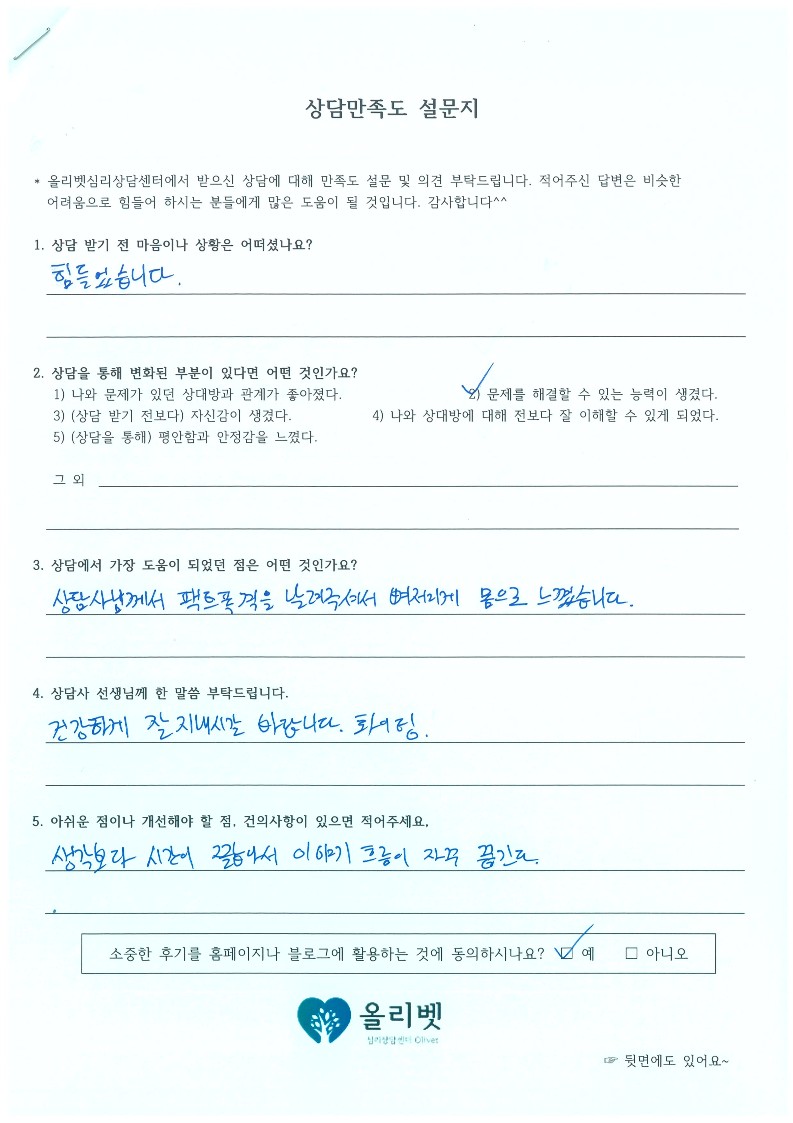 상담만족도 설문지
* 올리벳심리상담센터에서 받으신 상담에 대해 만족도 설문 및 의견 부탁드립니다. 적어주신 답변은 비슷한
어려움으로 힘들어 하시는 분들에게 많은 도움이 될 것입니다. 감사합니다^^
1. 상담 받기 전 마음이나 상황은 어떠셨나요?
힘들었습니다.
2. 상담을 통해 변화된 부분이 있다면 어떤 것인가요?
1) 나와 문제가 있던 상대방과 관계가 좋아졌다. 2) 문제를 해결할 수 있는 능력이 생겼다.
3) (상담 받기 전보다) 자신감이 생겼다. 4) 나와 상대방에 대해 전보다 잘 이해할 수 있게 되었다.
5) (상담을 통해) 평안함과 안정감을 느꼈다.
그 외
3. 상담에서 가장 도움이 되었던 점은 어떤 것인가요?
상담사님께서 팩트폭격을 날려주셔서 뼈저리게 몸으로 느꼈습니다.
4. 상담사 선생님께 한 말씀 부탁드립니다.
건강하게 잘 지내시길 바랍니다. 화이팅.
5. 아쉬운 점이나 개선해야 할 점, 건의사항이 있으면 적어주세요.
생각보다 시간이 짧아서 이야기 흐름이 자꾸 끊긴다.
소중한 후기를 홈페이지나 블로그에 활용하는 것에 동의하시나요? ☑ 예 □ 아니오
올리벳
심리상담센터 Olivet
☞ 뒷면에도 있어요~